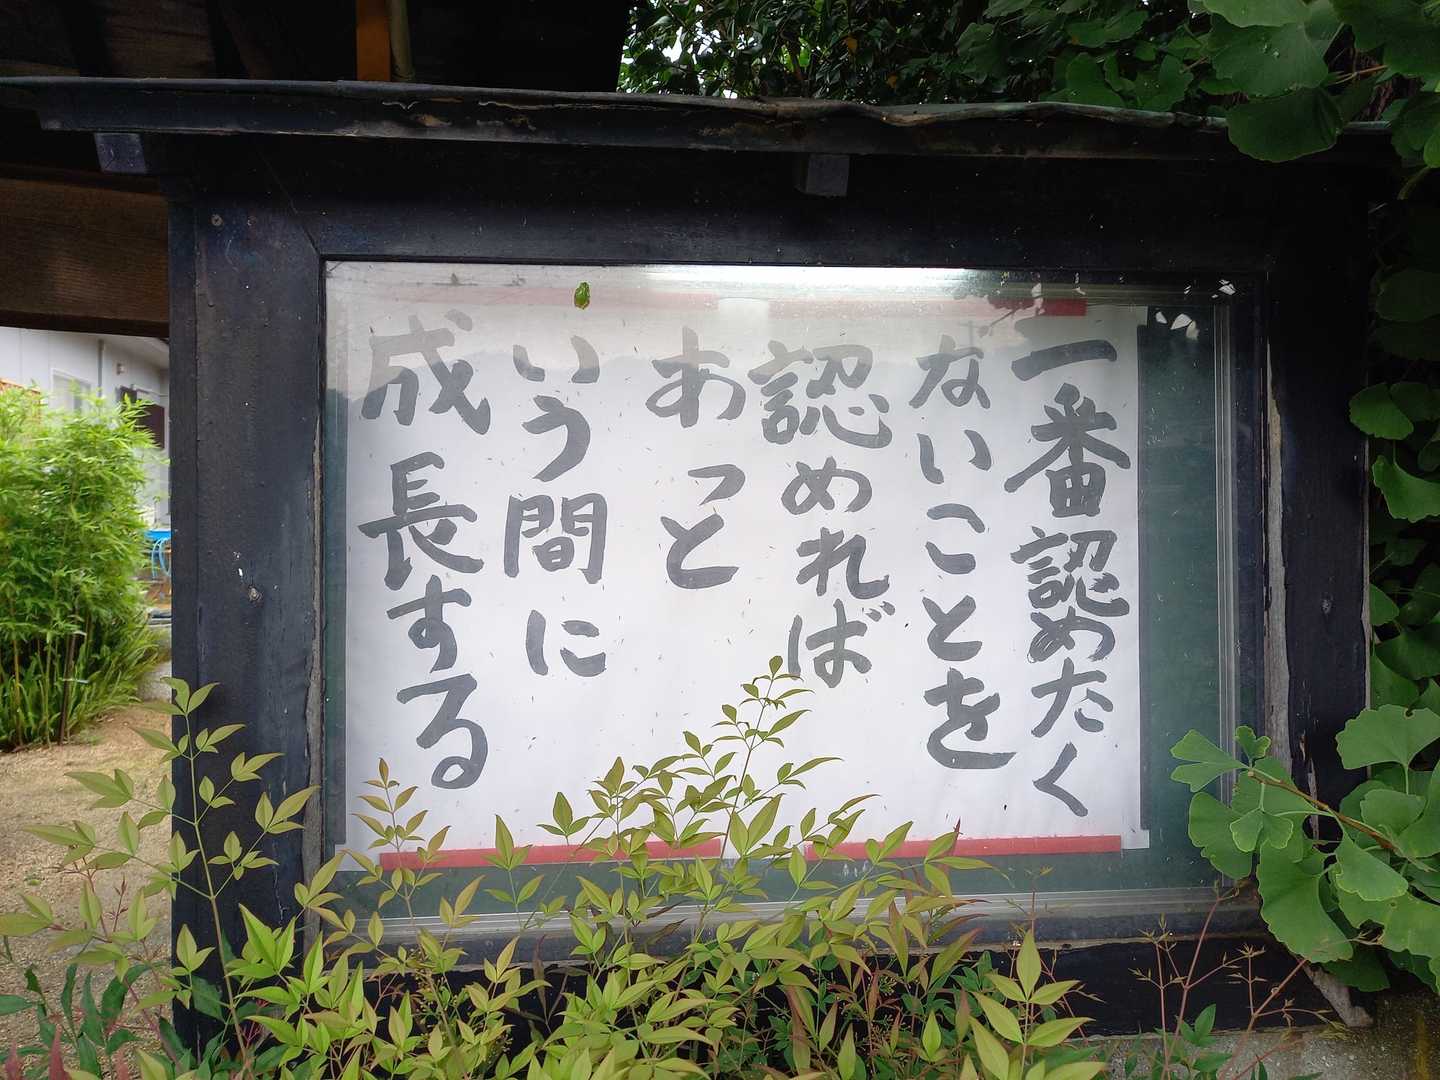 一番認めたく
ないことを
認めれば
あっと
いう間に
成長する